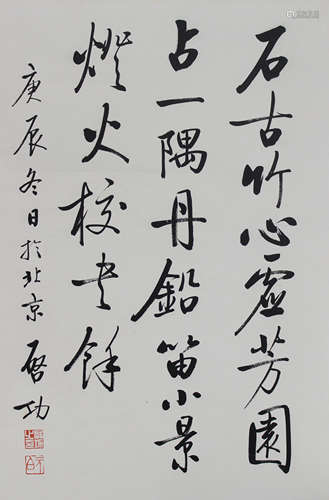 石古竹心虚芳園
占一隅丹鉛笛小景
燈火校書餘
庚辰冬日於北京
啓功